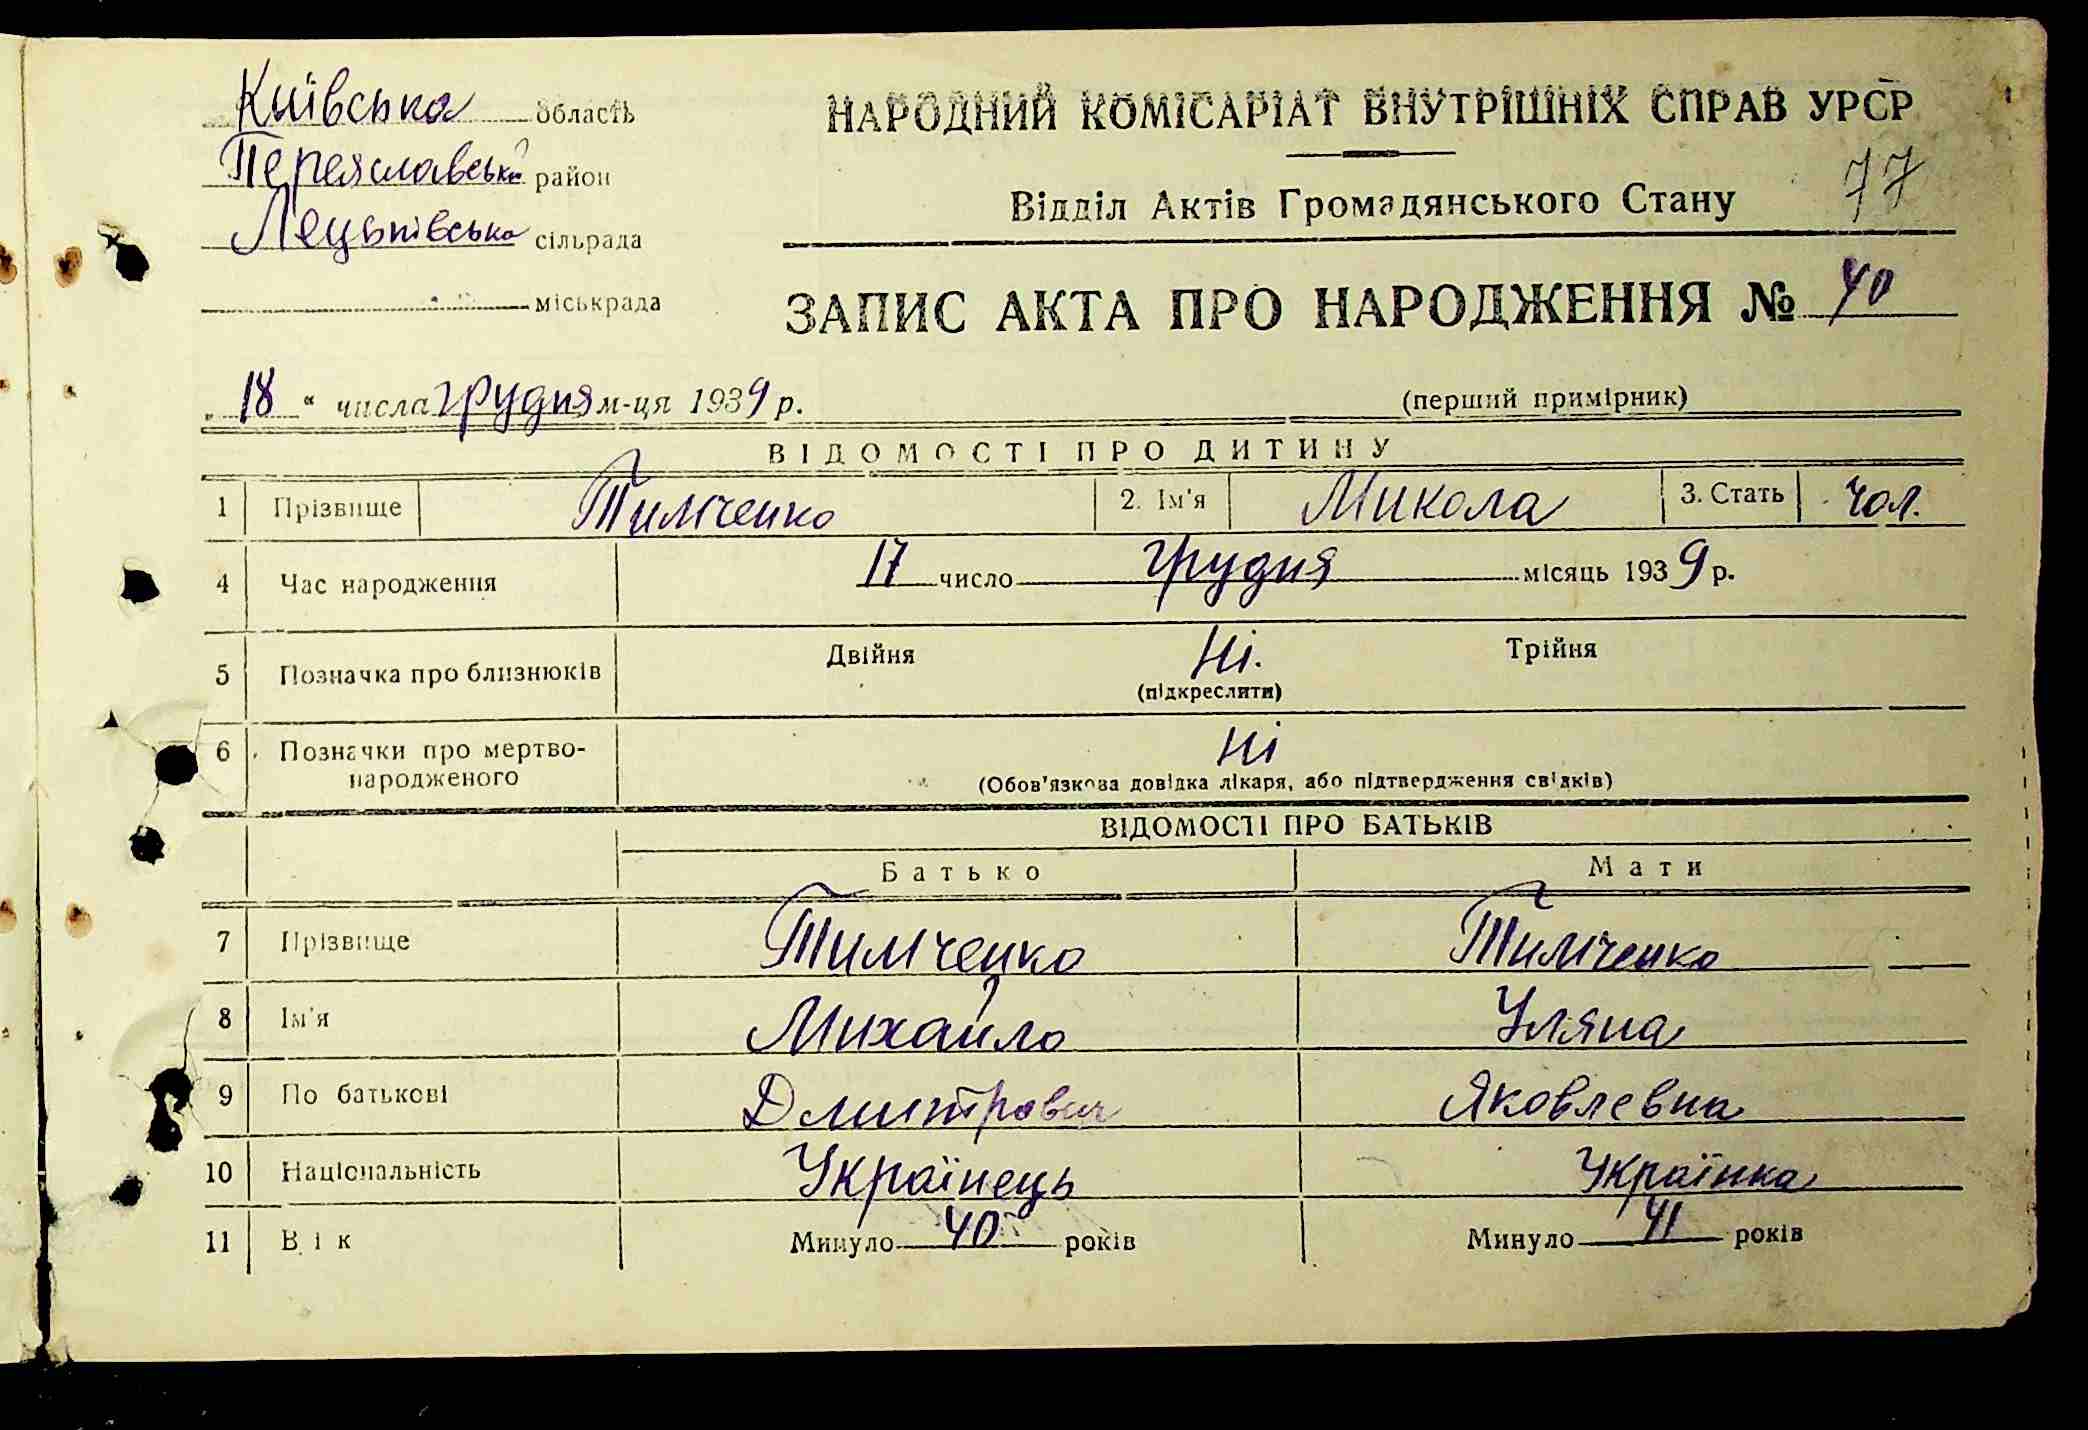 Київська область
Переяславськ район
Лецьківська сільрада
міськрада
НАРОДНИЙ КОМІСАРІАТ ВНУТРІШНІХ СПРАВ УРСР
77
Відділ Актів Громадянського Стану
ЗАПИС АКТА ПРО НАРОДЖЕННЯ № 40
„18“ числа грудня м-ця 1939 р.
(перший примірник)
ВІДОМОСТІ ПРО ДИТИНУ
1 Прізвище Тимченко 2. Ім'я Микола 3. Стать чол.
4 Час народження 17 число грудня місяць 1939 р.
5 Позначка про близнюків Двійня Ні. Трійня
(підкреслити)
6 Позначки про мертво-
народженого
Ні
(Обов'язкова довідка лікаря, або підтвердження свідків)
ВІДОМОСТІ ПРО БАТЬКІВ
Батько Мати
7 Прізвище Тимченко Тимченко
8 Ім'я Михайло Уляна
9 По батькові Дмитрович Яковлевна
10 Національність Українець Українка
11 Вік Минуло 40 років Минуло 41 років